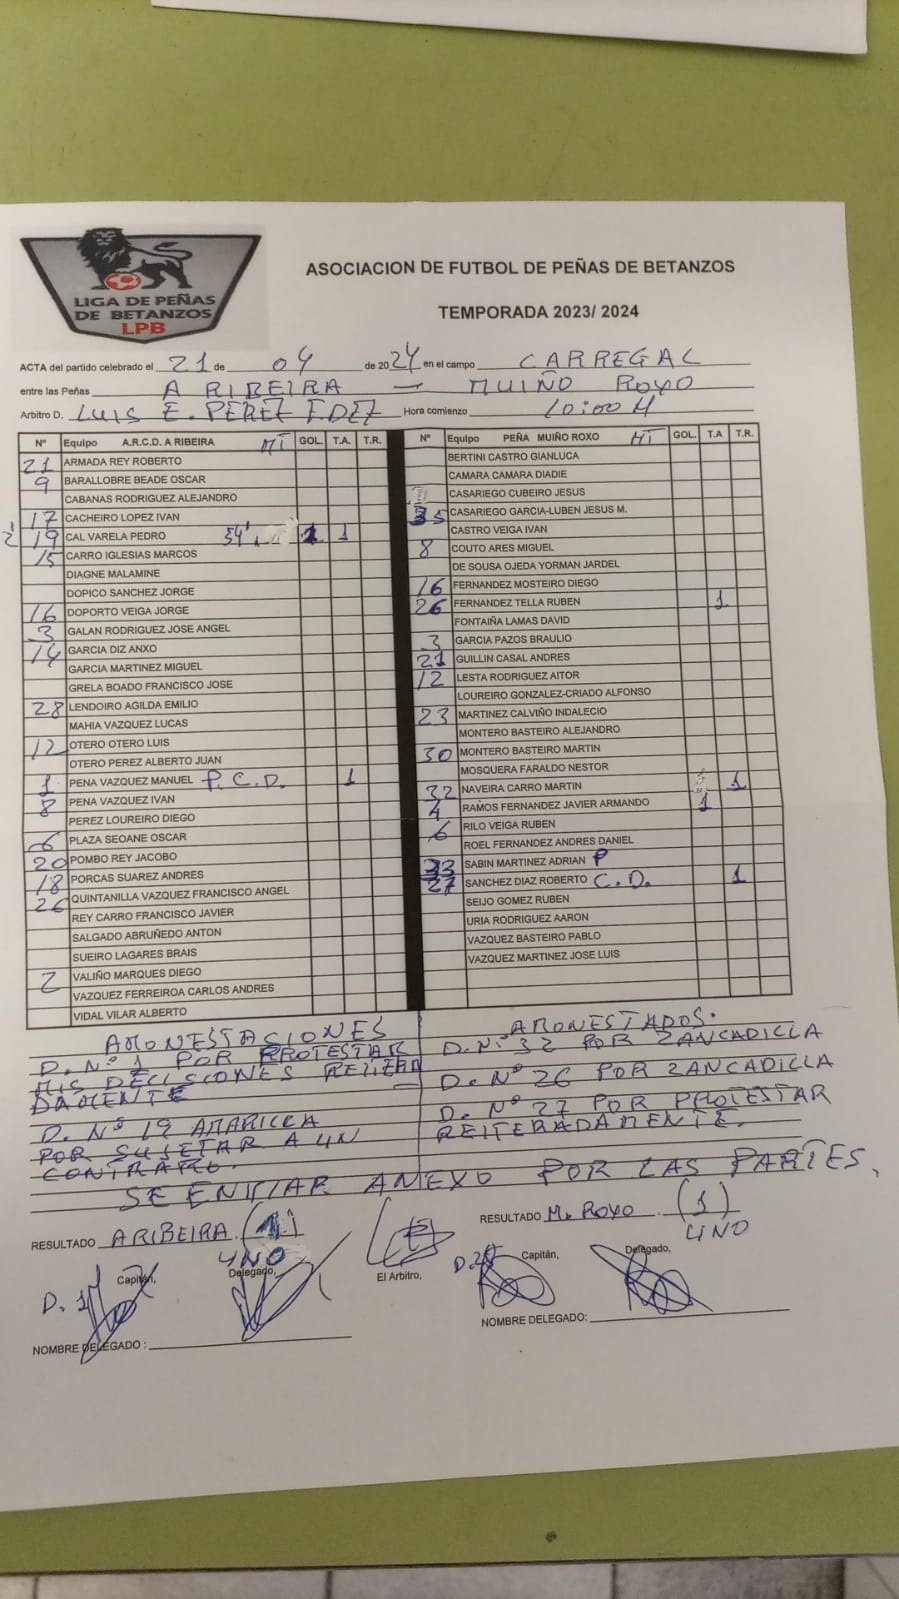 LIGA DE PEÑAS
DE BETANZOS
LPB
ASOCIACION DE FUTBOL DE PEÑAS DE BETANZOS
TEMPORADA 2023/ 2024
ACTA del partido celebrado el 21 de 04 de 2024 en el campo CARREGAL
entre las Peñas A RIBEIRA — MUIÑO ROXO
Arbitro D. LUIS E. PEREZ F.DEZ Hora comienzo 10:00 H
Nº Equipo A.R.C.D. A RIBEIRA MT GOL. T.A. T.R.
21 ARMADA REY ROBERTO
9 BARALLOBRE BEADE OSCAR
CABANAS RODRIGUEZ ALEJANDRO
17 CACHEIRO LOPEZ IVAN
19 CAL VARELA PEDRO 54' 1 1
15 CARRO IGLESIAS MARCOS
DIAGNE MALAMINE
DOPICO SANCHEZ JORGE
16 DOPORTO VEIGA JORGE
3 GALAN RODRIGUEZ JOSE ANGEL
14 GARCIA DIZ ANXO
GARCIA MARTINEZ MIGUEL
GRELA BOADO FRANCISCO JOSE
28 LENDOIRO AGILDA EMILIO
MAHIA VAZQUEZ LUCAS
12 OTERO OTERO LUIS
OTERO PEREZ ALBERTO JUAN
1 PENA VAZQUEZ MANUEL P.C.D. 1
8 PENA VAZQUEZ IVAN
PEREZ LOUREIRO DIEGO
6 PLAZA SEOANE OSCAR
20 POMBO REY JACOBO
18 PORCAS SUAREZ ANDRES
26 QUINTANILLA VAZQUEZ FRANCISCO ANGEL
REY CARRO FRANCISCO JAVIER
SALGADO ABRUÑEDO ANTON
SUEIRO LAGARES BRAIS
2 VALIÑO MARQUES DIEGO
VAZQUEZ FERREIROA CARLOS ANDRES
VIDAL VILAR ALBERTO
Nº Equipo PEÑA MUIÑO ROXO MT GOL. T.A T.R.
BERTINI CASTRO GIANLUCA
CAMARA CAMARA DIADIE
CASARIEGO CUBEIRO JESUS
35 CASARIEGO GARCIA-LUBEN JESUS M.
CASTRO VEIGA IVAN
8 COUTO ARES MIGUEL
DE SOUSA OJEDA YORMAN JARDEL
16 FERNANDEZ MOSTEIRO DIEGO
26 FERNANDEZ TELLA RUBEN 1
FONTAIÑA LAMAS DAVID
3 GARCIA PAZOS BRAULIO
21 GUILLIN CASAL ANDRES
12 LESTA RODRIGUEZ AITOR
LOUREIRO GONZALEZ-CRIADO ALFONSO
23 MARTINEZ CALVIÑO INDALECIO
MONTERO BASTEIRO ALEJANDRO
30 MONTERO BASTEIRO MARTIN
MOSQUERA FARALDO NESTOR
32 NAVEIRA CARRO MARTIN 1
4 RAMOS FERNANDEZ JAVIER ARMANDO 1
6 RILO VEIGA RUBEN
ROEL FERNANDEZ ANDRES DANIEL
33 SABIN MARTINEZ ADRIAN P
27 SANCHEZ DIAZ ROBERTO C.D. 1
SEIJO GOMEZ RUBEN
URIA RODRIGUEZ AARON
VAZQUEZ BASTEIRO PABLO
VAZQUEZ MARTINEZ JOSE LUIS
AMONESTACIONES
D. Nº 1 POR PROTESTAR
MIS DECISIONES REITERA
DAMENTE
D. Nº 19 AMARILLA
POR SUJETAR A UN
CONTRARIO.
AMONESTADOS.
D. Nº 32 POR ZANCADILLA
D. Nº 26 POR ZANCADILLA
D. Nº 27 POR PROTESTAR
REITERADAMENTE.
SE ENVIAR ANEXO POR LAS PARTES.
RESULTADO A RIBEIRA (1)
UNO
RESULTADO M. ROXO (1)
UNO
D. 1 Capitán, Delegado, El Arbitro, Capitán, Delegado,
NOMBRE DELEGADO :
NOMBRE DELEGADO: